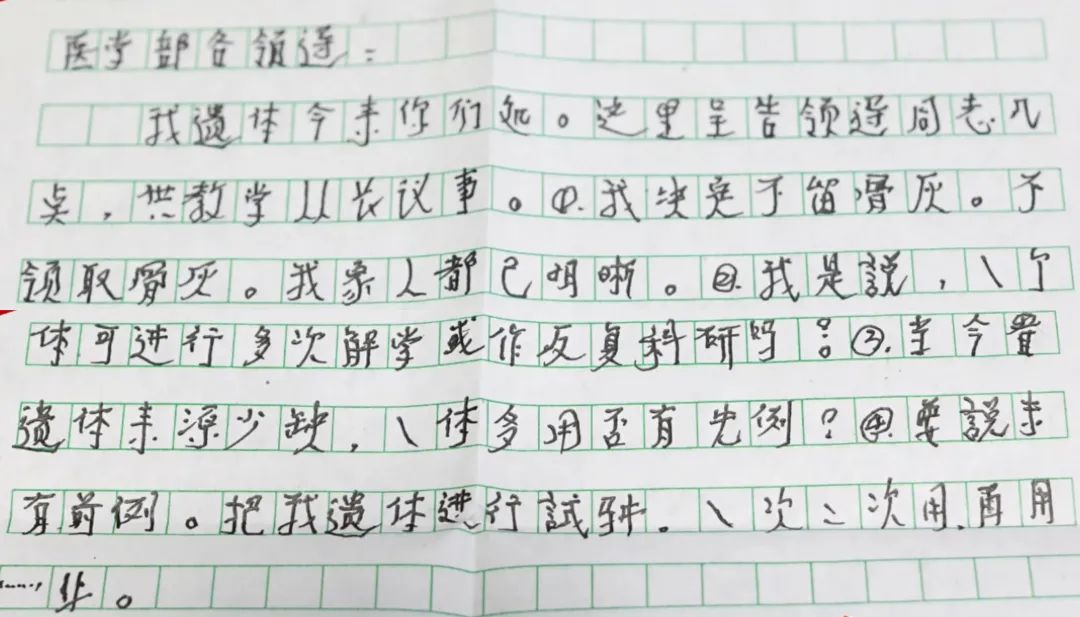 医学部各领导：
我遗体今来你们处。这里呈告领导同志几
点，供教学从长议事。①.我决定不留骨灰。不
领取骨灰。我家人都已明晰。②.我是説，一个
体可进行多次解学或作反复科研吗？③.当今置
遗体来源少缺，一体多用否有先例？④.要説未
有前例。把我遗体进行試驗。一次二次用.再用
……止。